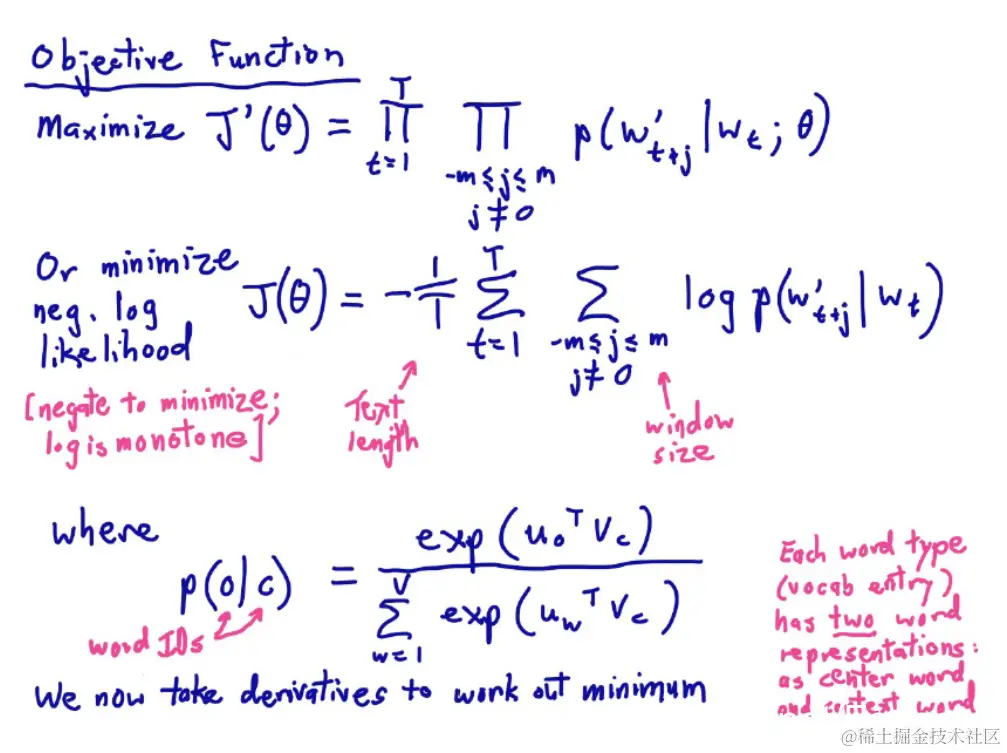 Objective Function
Maximize J'(θ) = ∏_{t=1}^{T} ∏_{-m≤j≤m, j≠0} p(w'_{t+j} | w_t ; θ)
Or minimize
neg. log
likelihood
J(θ) = -1/T ∑_{t=1}^{T} ∑_{-m≤j≤m, j≠0} log p(w'_{t+j} | w_t)
[negate to minimize;
log is monotone]
Text
length
window
size
where
p(o|c) = exp(u_o^T v_c) / ∑_{w=1}^{V} exp(u_w^T v_c)
word IDs
Each word type
(vocab entry)
has two word
representations:
as center word
and context word
We now take derivatives to work out minimum
@稀土掘金技术社区